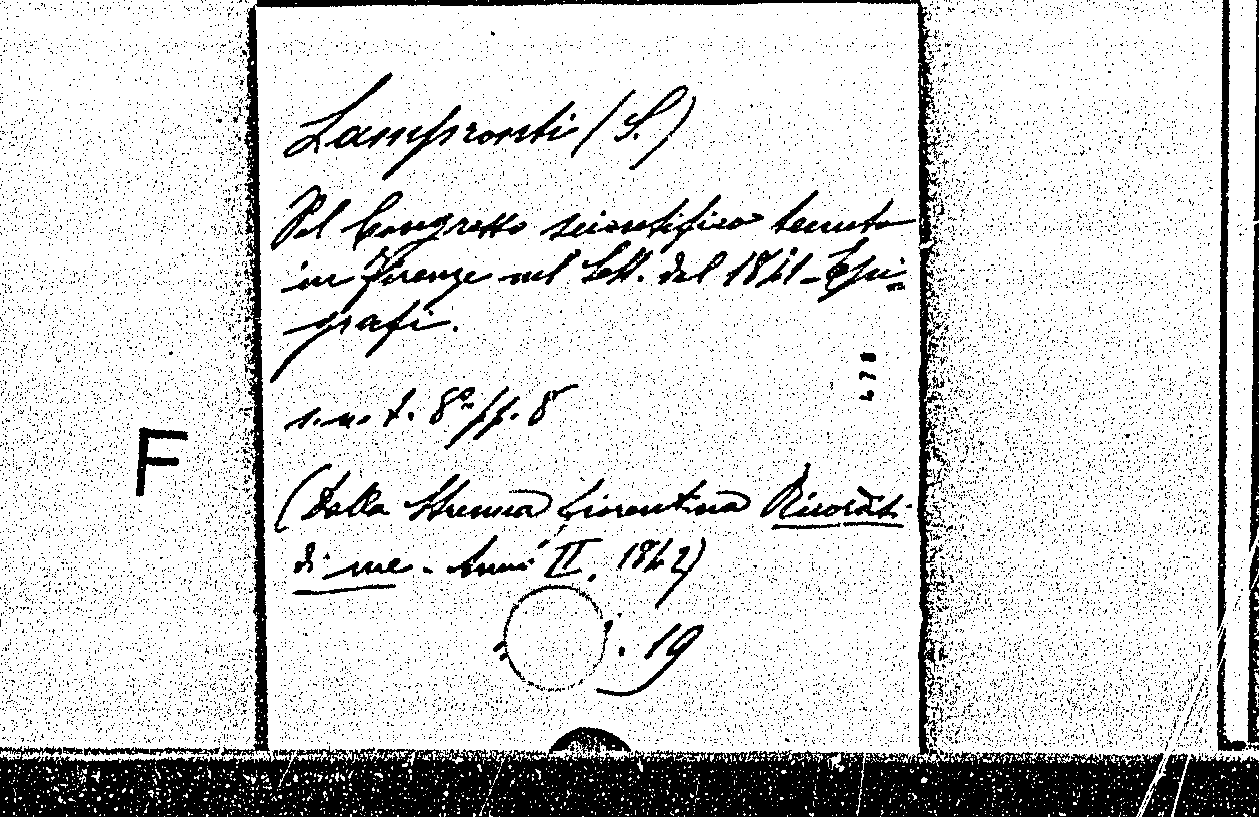 Lampronti (S.)
Pel Congresso scientifico tenuto
in Firenze nel Sett. del 1841 - Epi-
grafi.
s. n. t. 8º pp. 8
(Dalla Strenna fiorentina Ricordati
di me - Anno II. 1842)
. 19
F